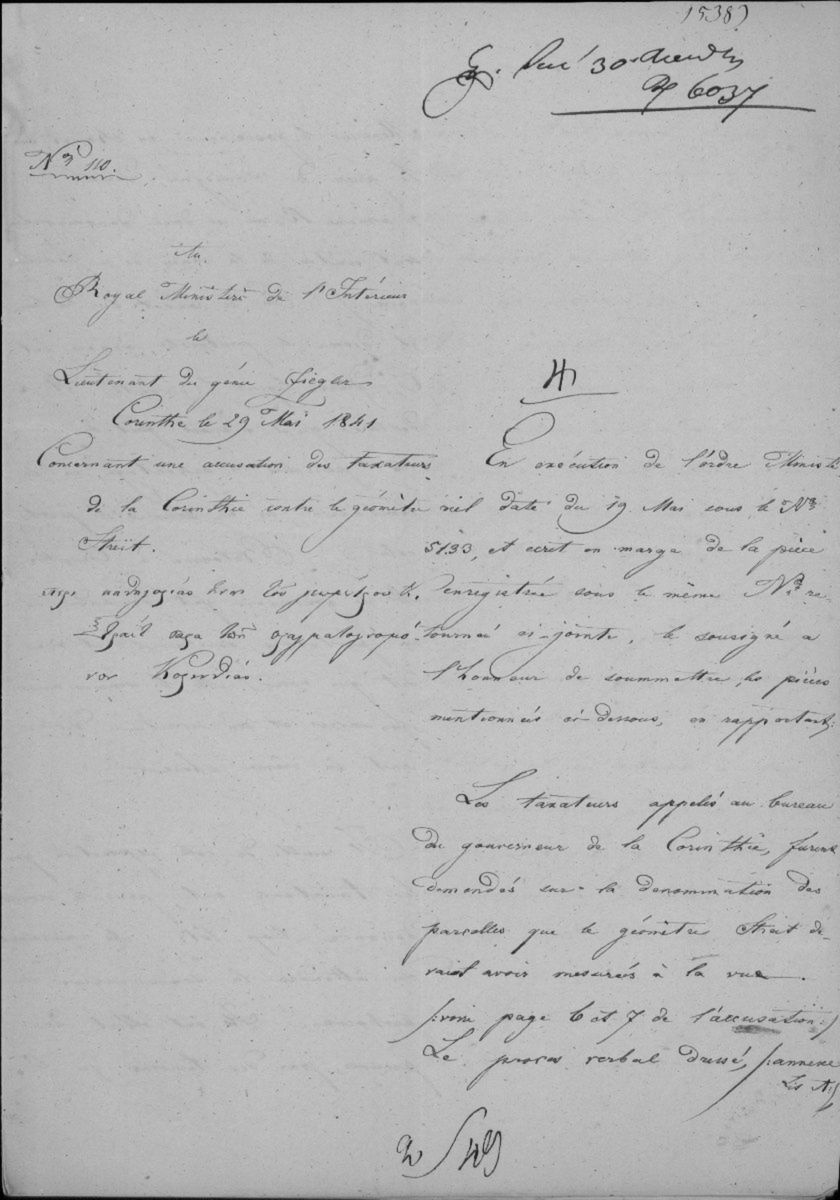 (538)
30
6037
Nº 110.
Au
Royal Ministère de l'Intérieur
le
Lieutenant du génie
Corinthe le 29 Mai 1841
Concernant une accusation des taxateurs
de la Corinthie contre le géomètre
Streit.
περι κατηγορίας του γεωμέτρου κ.
Στράϊτ παρα των πραγματογνωμό
νων Κορινθίας.
4
En exécution de l'ordre Ministé
riel daté du 19 Mai sous le Nº
5133, et écret en marge de la pièce
enregistrée sous le même Nº re
tournée ci-jointe, le sousigné a
l'honneur de soummettre les pièces
mentionnés ci-dessous, en rapportant:
Les taxateurs appelés au bureau
du gouverneur de la Corinthie, furent
demendés sur la denommination des
parcelles que le géomètre Streit de-
vait avoir mesurées à la vue.
/:voir page 6 et 7 de l'accusation:/
Le proces verbal dressé, /:annexe
Lit A:/